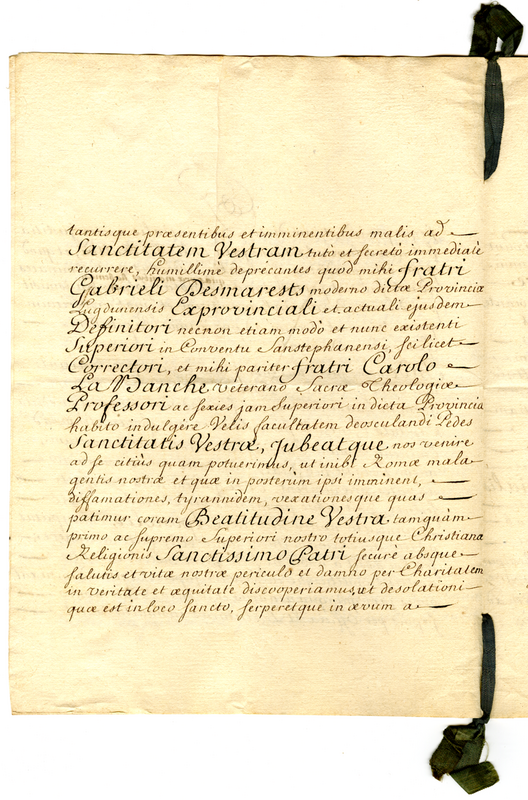 tantisque præsentibus et imminentibus malis ad
Sanctitatem Vestram tuto et secretò immediatè
recurrere, humillime deprecantes quod mihi fratri
Gabrieli Desmarests moderno dictæ Provinciæ
Lugdunensis Exprovinciali et actuali ejusdem
Definitori necnon etiam modò et nunc existenti
Superiori in Conventu Sanstephanensi, scilicet
Correctori, et mihi pariter fratri Carolo
La Manche veterano Sacræ Theologiæ
Professori ac sexies jam Superiori in dicta Provincia
habito indulgère Velis facultatem deosculandi Pedes
Sanctitatis Vestræ, Jubeatque nos venire
ad se citiùs quam potuerimus, ut inibi Romæ mala
gentis nostræ et quæ in posterùm ipsi imminent,
diffamationes, tyrannidem, vexationesque quas
patimur coram Beatitudine Vestra tamquàm
primo ac supremo Superiori nostro totiusque Christianæ
Religionis Sanctissimo Patri securè absque
salutis et vitæ nostræ periculo et damno per Charitatem
in veritate et æquitate discooperiamus, ut desolationi
quæ est in loco sancto, serperetque in ævum a